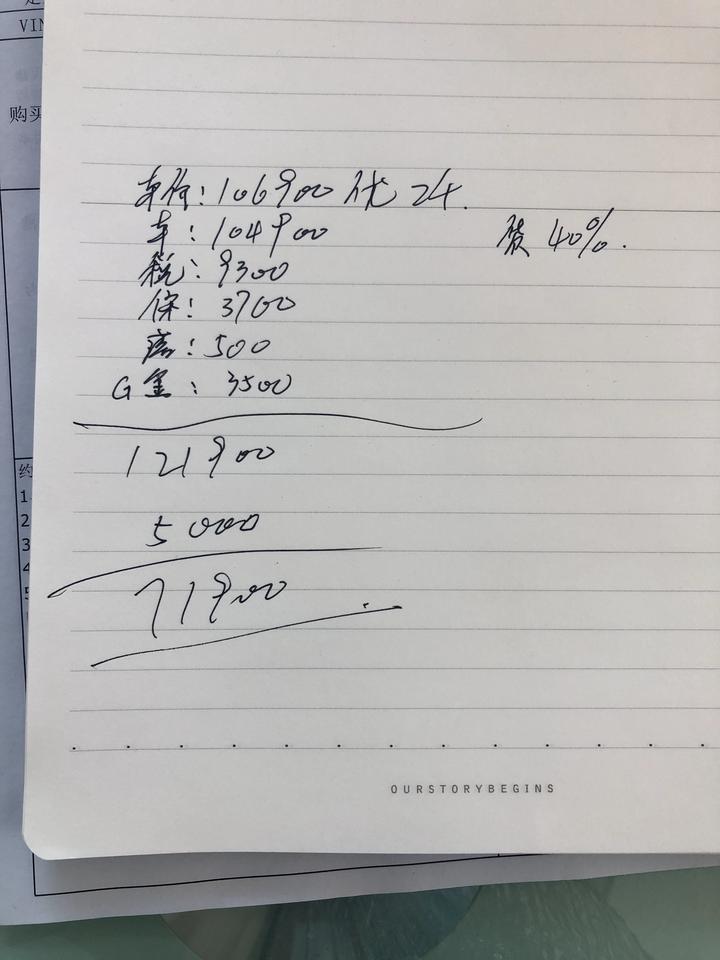 VIN
购买
车价: 106900 优 2千.
车: 104900
贷 40%.
税: 9300
保: 3700
: 500
G金: 3500
121900
5000
71900
约
1
2
3
4
5
OURSTORYBEGINS